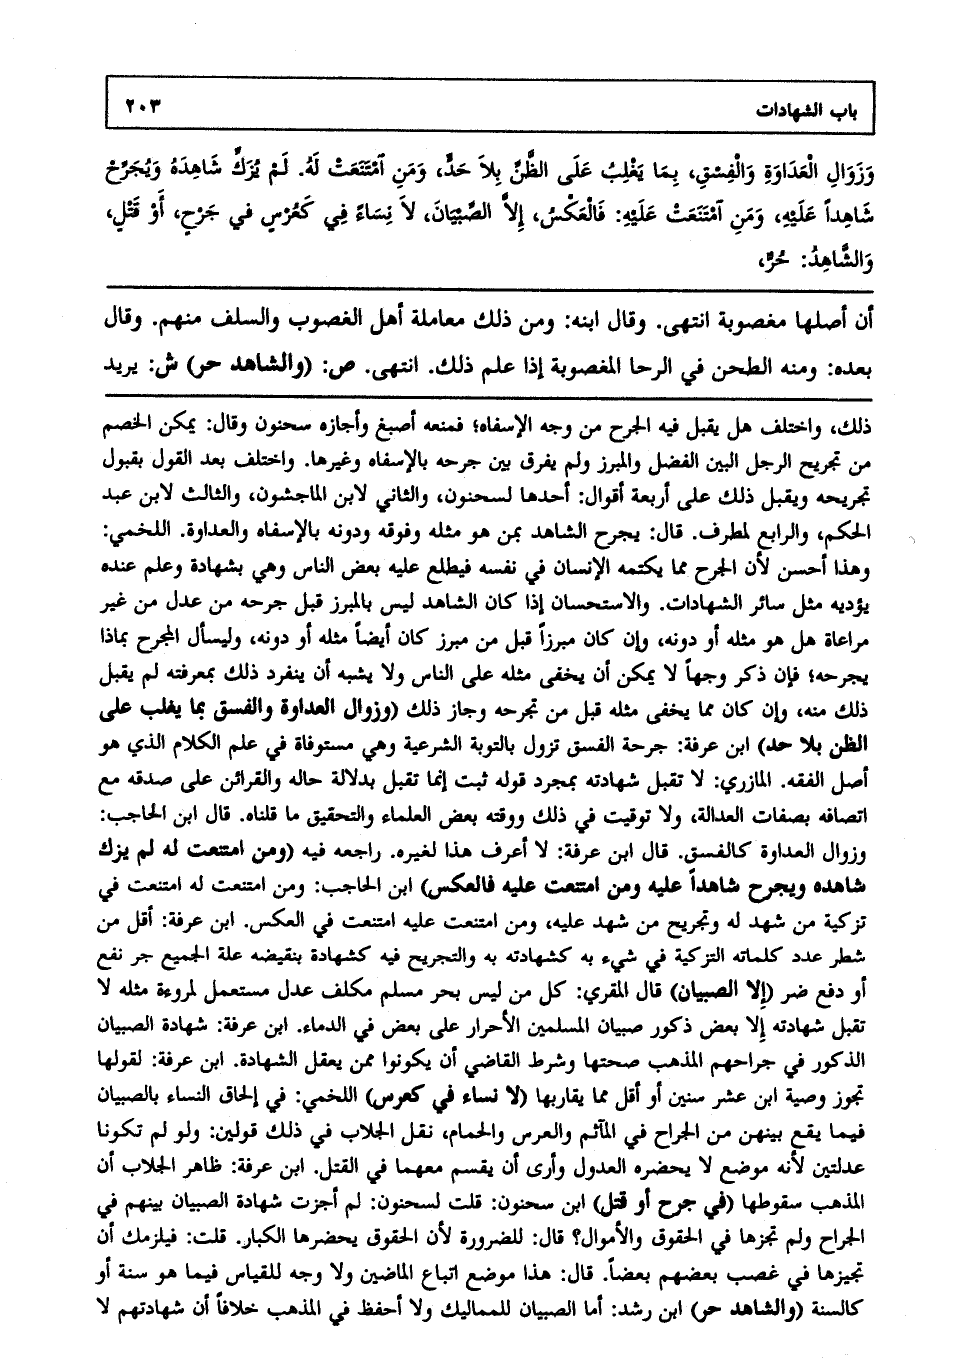 باب الشهادات ٢٠٣
وَزَوَالِ الْعَدَاوَةِ وَالْفِسْقِ، بِمَا يَغْلِبُ عَلَى الظَّنِّ بِلاَ حَدٍّ، وَمَنِ آمْتَنَعَتْ لَهُ. لَمْ يُزَكِّ شَاهِدَهُ وَيُجَرِّحْ
شَاهِداً عَلَيْهِ، وَمَنِ آمْتَنَعَتْ عَلَيْهِ: فَالْعَكْسُ، إِلاَّ الصِّبْيَانَ، لاَ نِسَاءً فِي كَعُرْسٍ في جَرْحٍ، أَوْ قَتْلٍ،
وَالشَّاهِدُ: حُرٌّ،
أن أصلها مغصوبة انتهى. وقال ابنه: ومن ذلك معاملة أهل الغصوب والسلف منهم. وقال
بعده: ومنه الطحن في الرحا المغصوبة إذا علم ذلك. انتهى. ص: (والشاهد حر) ش: يريد
ذلك، واختلف هل يقبل فيه الجرح من وجه الإسفاه؛ فمنعه أصبغ وأجازه سحنون وقال: يمكن الخصم
من تجريح الرجل البين الفضل والمبرز ولم يفرق بين جرحه بالإسفاه وغيرها. واختلف بعد القول بقبول
تجريحه ويقبل ذلك على أربعة أقوال: أحدها لسحنون، والثاني لابن الماجشون، والثالث لابن عبد
الحكم، والرابع لمطرف. قال: يجرح الشاهد بمن هو مثله وفوقه ودونه بالإسفاه والعداوة. اللخمي:
وهذا أحسن لأن الجرح مما يكتمه الإنسان في نفسه فيطلع عليه بعض الناس وهي بشهادة وعلم عنده
يؤديه مثل سائر الشهادات. والاستحسان إذا كان الشاهد ليس بالمبرز قبل جرحه من عدل من غير
مراعاة هل هو مثله أو دونه، وإن كان مبرزاً قبل من مبرز كان أيضاً مثله أو دونه، وليسأل المجرح بماذا
يجرحه؛ فإن ذكر وجهاً لا يمكن أن يخفى مثله على الناس ولا يشبه أن ينفرد ذلك بمعرفته لم يقبل
ذلك منه، وإن كان مما يخفى مثله قبل من تجرحه وجاز ذلك (وزوال العداوة والفسق بما يغلب على
الظن بلا حد) ابن عرفة: جرحة الفسق تزول بالتوبة الشرعية وهي مستوفاة في علم الكلام الذي هو
أصل الفقه. المازري: لا تقبل شهادته بمجرد قوله ثبت إنما تقبل بدلالة حاله والقرائن على صدقه مع
اتصافه بصفات العدالة، ولا توقيت في ذلك ووقته بعض العلماء والتحقيق ما قلناه. قال ابن الحاجب:
وزوال العداوة كالفسق. قال ابن عرفة: لا أعرف هذا لغيره. راجعه فيه (ومن امتنعت له لم يزك
شاهده ويجرح شاهداً عليه ومن امتنعت عليه فالعكس) ابن الحاجب: ومن امتنعت له امتنعت في
تزكية من شهد له وتجريح من شهد عليه، ومن امتنعت عليه امتنعت في العكس. ابن عرفة: أقل من
شطر عدد كلماته التزكية في شيء به كشهادته به والتجريح فيه كشهادة بنقيضه علة الجميع جر نفع
أو دفع ضر (إلا الصبيان) قال المقري: كل من ليس بحر مسلم مكلف عدل مستعمل لمروءة مثله لا
تقبل شهادته إلا بعض ذكور صبيان المسلمين الأحرار على بعض في الدماء. ابن عرفة: شهادة الصبيان
الذكور في جراحهم المذهب صحتها وشرط القاضي أن يكونوا ممن يعقل الشهادة. ابن عرفة: لقولها
تجوز وصية ابن عشر سنين أو أقل مما يقاربها (لا نساء في كعرس) اللخمي: في إلحاق النساء بالصبيان
فيما يقع بينهن من الجراح في المآثم والعرس والحمام، نقل الجلاب في ذلك قولين: ولو لم تكونا
عدلتين لأنه موضع لا يحضره العدول وأرى أن يقسم معهما في القتل. ابن عرفة: ظاهر الجلاب أن
المذهب سقوطها (في جرح أو قتل) ابن سحنون: قلت لسحنون: لم أجزت شهادة الصبيان بينهم في
الجراح ولم تجزها في الحقوق والأموال؟ قال: للضرورة لأن الحقوق يحضرها الكبار. قلت: فيلزمك أن
تجيزها في غصب بعضهم بعضاً. قال: هذا موضع اتباع الماضين ولا وجه للقياس فيما هو سنة أو
كالسنة (والشاهد حر) ابن رشد: أما الصبيان للمماليك ولا أحفظ في المذهب خلافاً أن شهادتهم لا